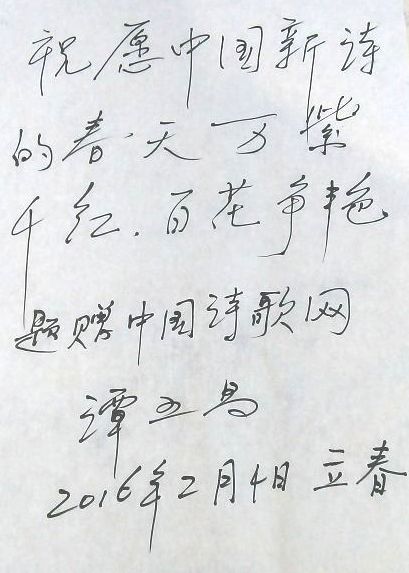 祝愿中国新诗
的春天万紫
千红、百花争艳
题赠中国诗歌网
谭五昌
2016年2月4日 立春